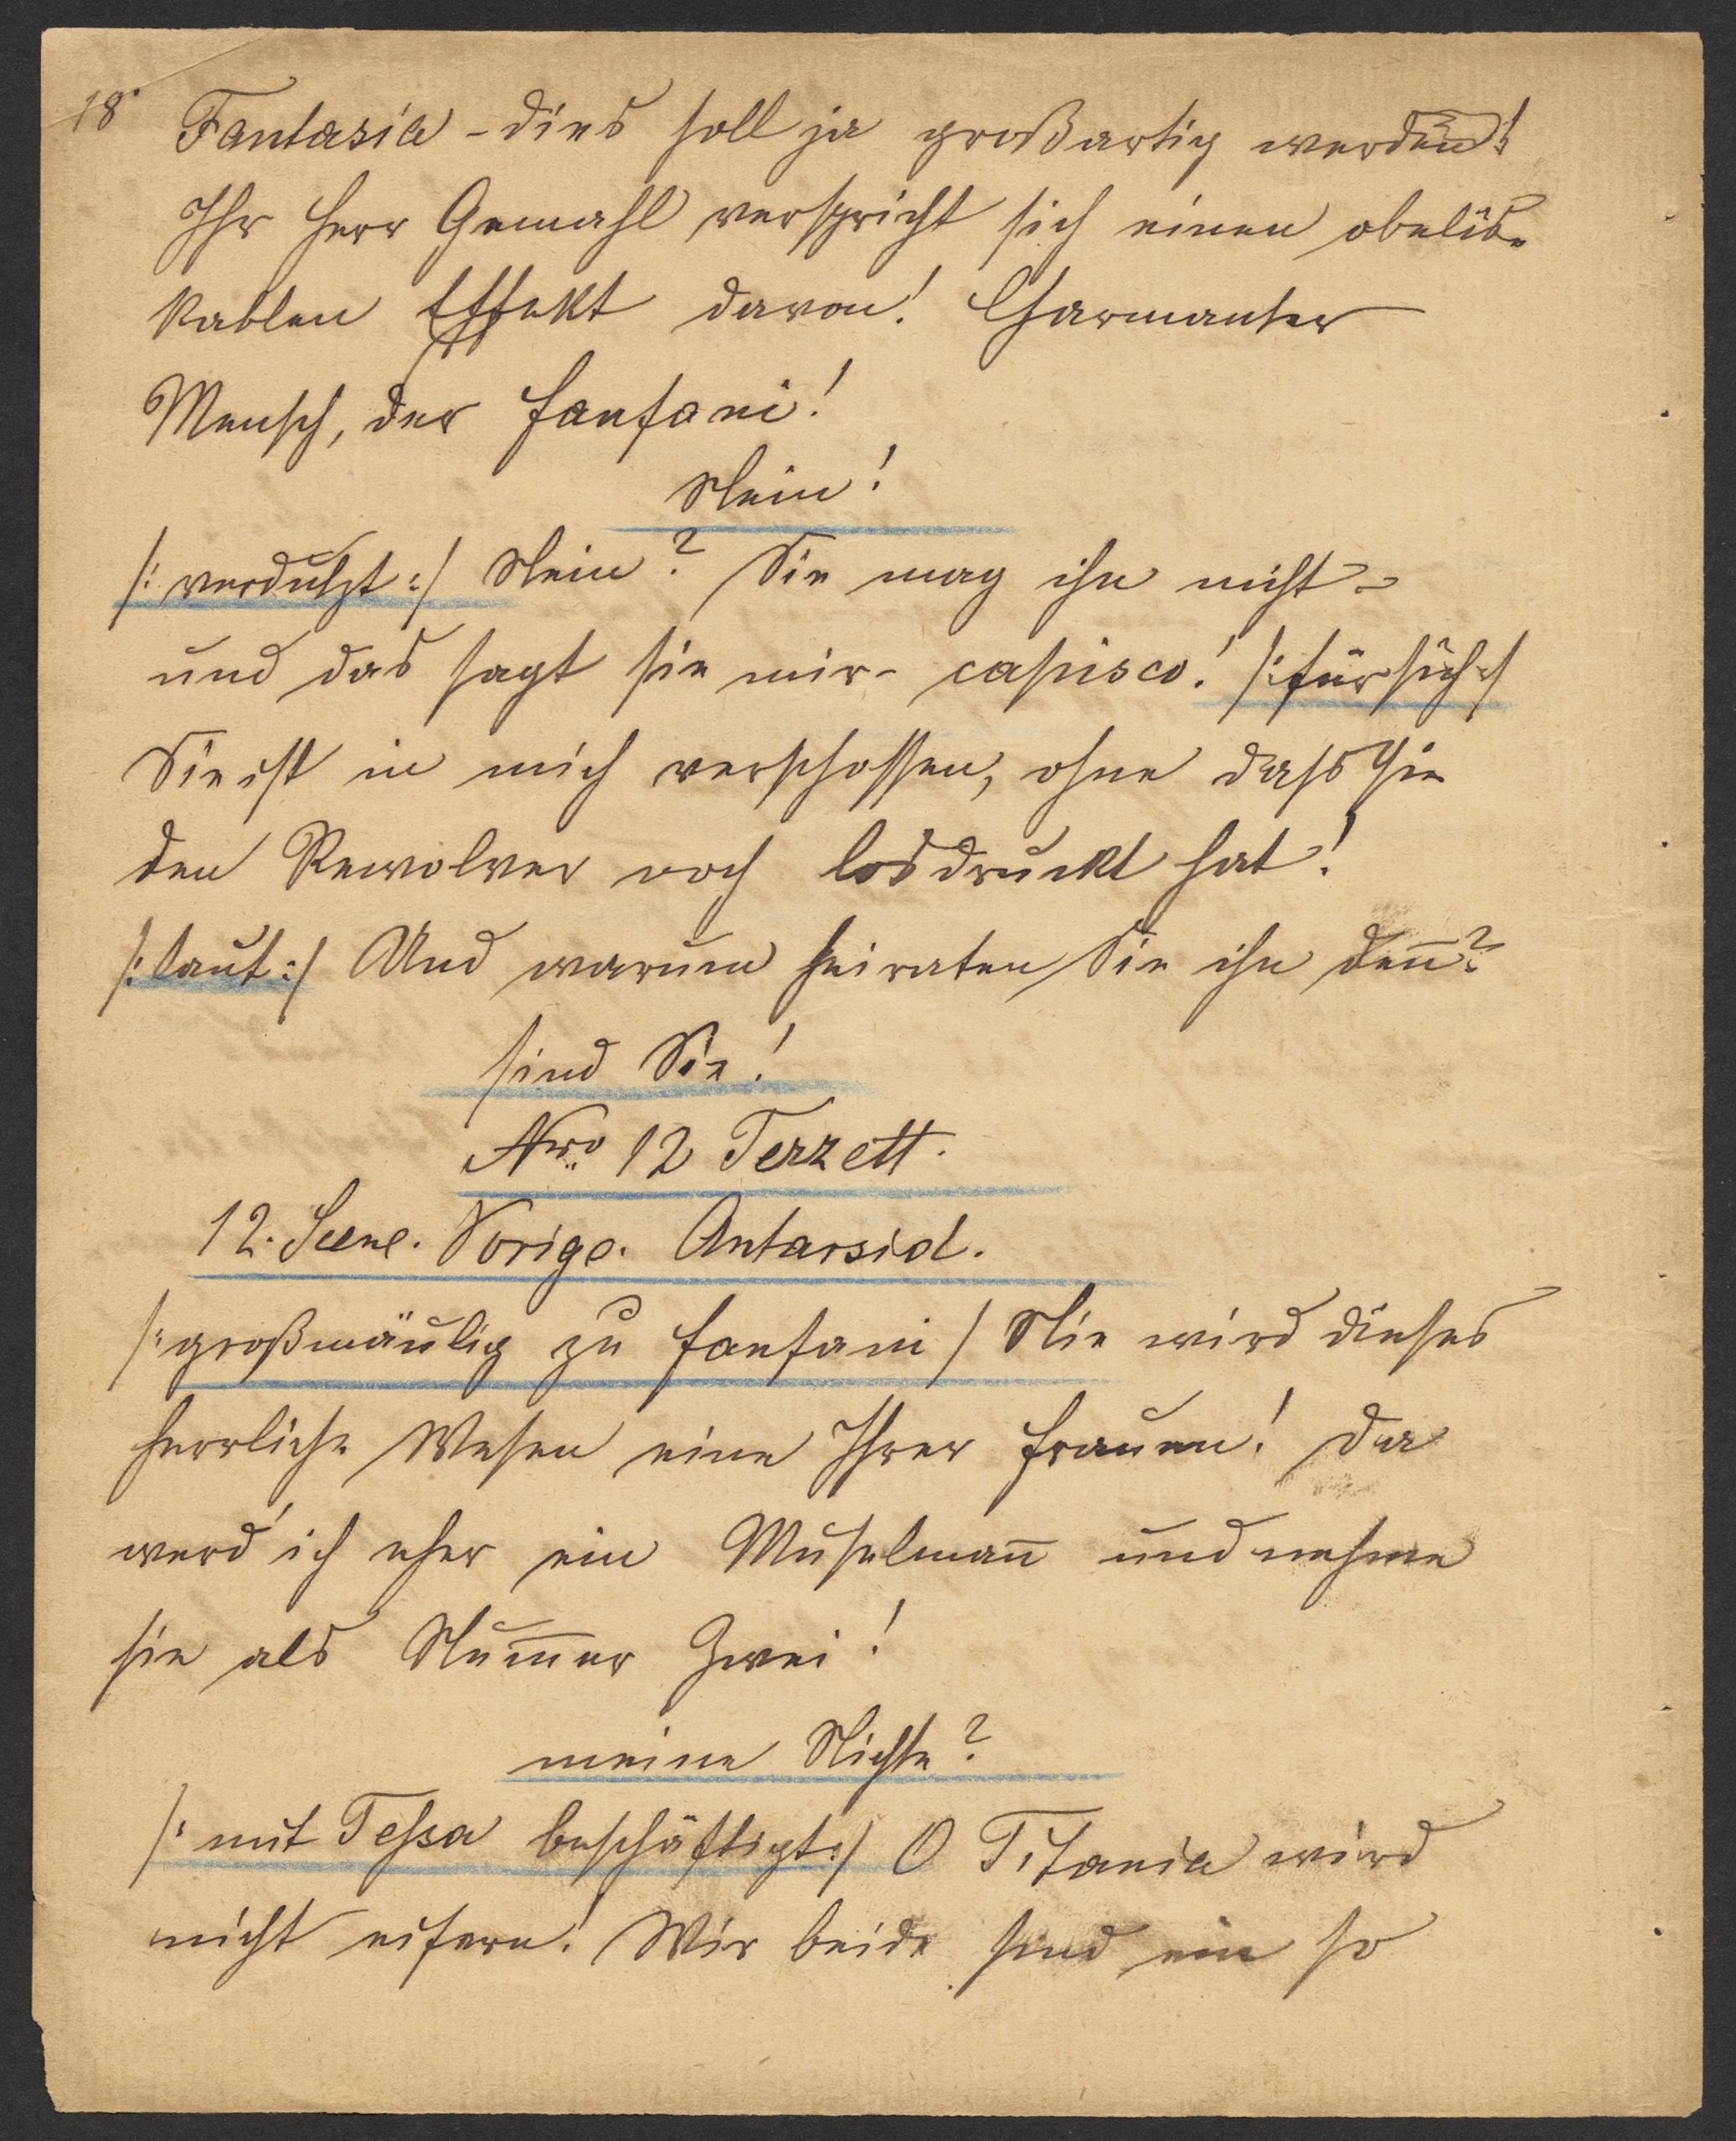 18
Fantasia - dies soll ja großartig werden!
Ihr Herr Gemahl verspricht sich einen obelis-
kablen Effekt davon! Charmanter
Mensch, der Fanfani!
Nein!
/: verdutzt :/ Nein? Sie mag ihn nicht -
und das sagt sie mir - capisco! /: für sich :/
Sie ist in mich verschossen, ohne dass sie
den Rewolver noch losdruckt hat!
/: laut :/ Und warum heiraten Sie ihn deñ?
sind Sie!
Nro 12 Terzett.
12. Scene. Vorige. Antarsid.
/: großmäulig zu Fanfani / Nie wird dieses
herrliche Wesen eine Ihrer Frauen! Da
werd' ich eher ein Muselmañ und nehme
sie als Num̄er Zwei!
meine Nichte?
/: mit Tessa beschäftigt :/ O Titania wird
nicht eifern! Wir beide sind ein so